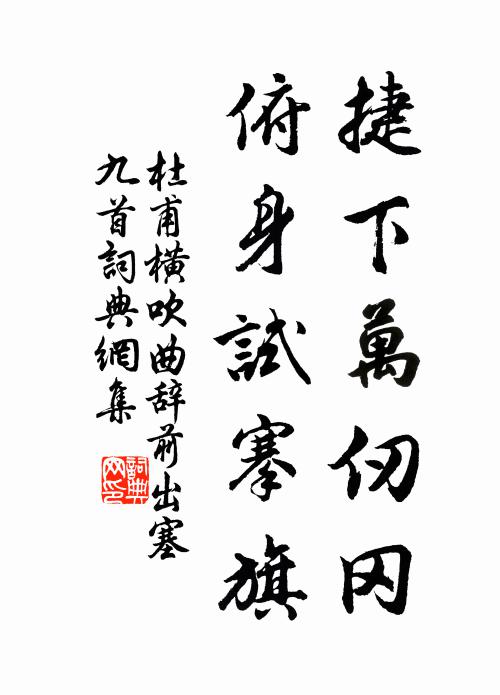 捷下萬仞冈
俯身試搴旗
杜甫橫吹曲辞前出塞
九首詞典網集
詞典网印